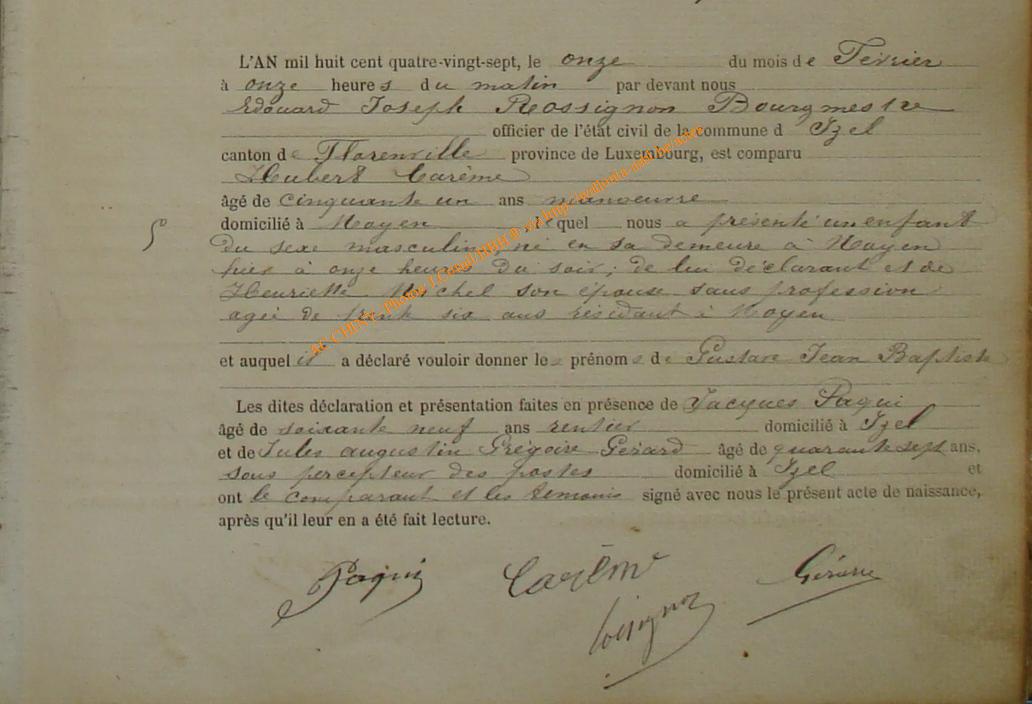 L'AN mil huit cent quatre-vingt-sept, le onze du mois de Février
à onze heures du matin par devant nous
Edouard Joseph Rossignon Bourgmestre
officier de l'état civil de la commune d Izel
canton de Florenville province de Luxembourg, est comparu
Hubert Carême
âgé de cinquante un ans manoeuvre
domicilié à Moyen lequel nous a présenté un enfant
du sexe masculin, né en sa demeure à Moyen
hier à onze heures du soir; de lui déclarant et de
Henriette Michel son épouse sans profession
agée de trente six ans résidant à Moyen
et auquel il a déclaré vouloir donner les prénoms de Gustave Jean Baptiste
Les dites déclaration et présentation faites en présence de Jacques Paqui
âgé de soixante neuf ans rentier domicilié à Izel
et de Jules augustin Grégoire Gérard âgé de quarante sept ans,
sous percepteur des postes domicilié à Izel et
ont le comparant et les temoins signé avec nous le présent acte de naissance,
après qu'il leur en a été fait lecture.
Paqui Carême Gérard
Rossignon
AC CHINY - Photos